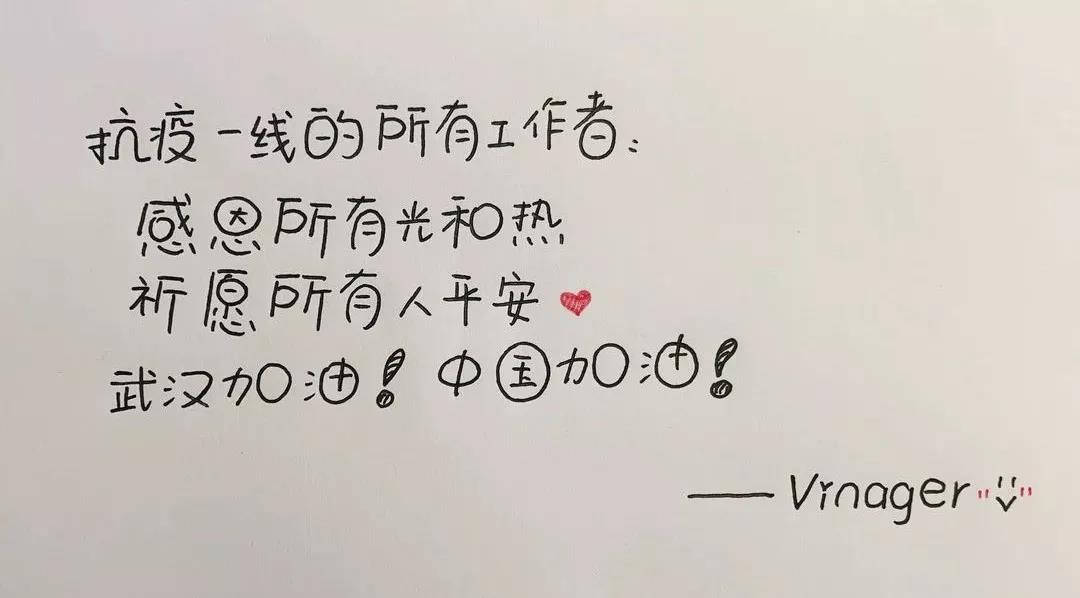 抗疫一线的所有工作者:
感恩所有光和热
祈愿所有人平安
武汉加油!中国加油!
——Vinager